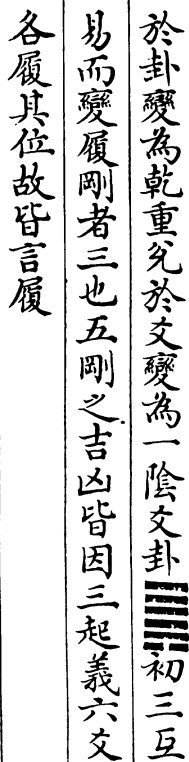 於卦變為乾重兌於爻變為一陰爻卦䷫初三互
易而變履剛者三也五剛之吉凶皆因三起義六爻
各履其位故皆言履